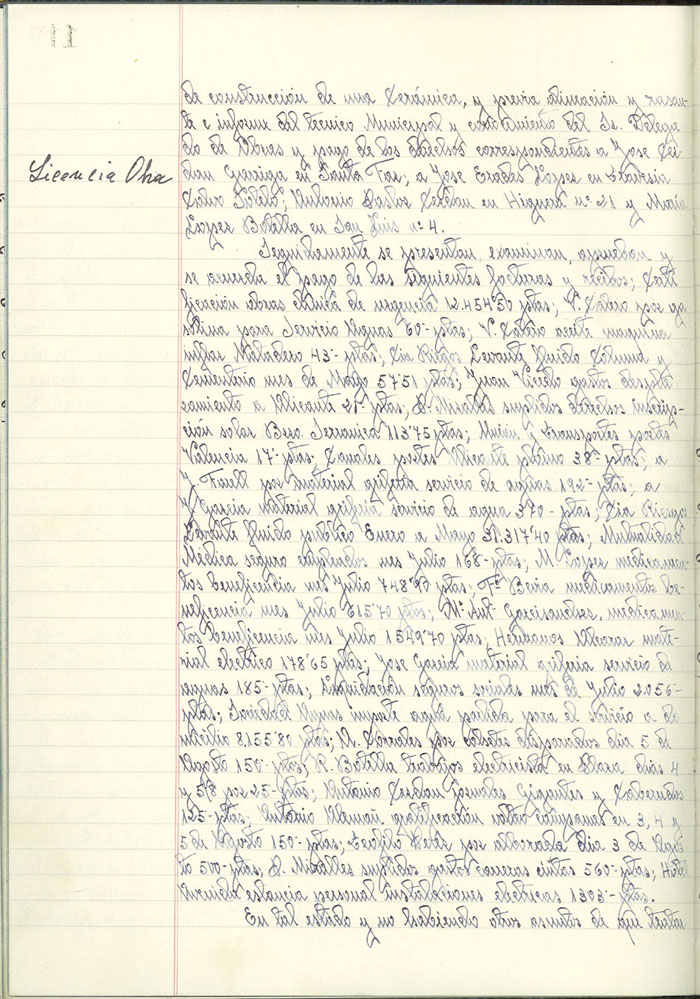 11
de construcción de una Cerámica, y previa alineación y rasan-
te e informe del tecnico Municipal y conocimiento del Sr. Delega-
do de Obras y pago de los derechos correspondientes a Jose
Licencia Obra
Garriga en Santa, a Jose Lopez en
Calvo Sotelo; Antonio Pastor Cerdan en Higuera nº 21 y Maria
Lopez Botella en San Luis nº 4.
Seguidamente se presentan, examinan, aprueban y
se acuerda el pago de las siguientes facturas y recibos; Certi-
ficación obras clinica de urgencia 12.454'50 ptas; V. Valero por ga-
solina para Servicio Aguas 60'- ptas; V. aceite maquina
Matadero 43'- ptas; Cia Riegos Levante fluido Coluna y
Cementerio mes de Mayo 57'51 ptas; Juan gastos despla-
zamiento a Alicante 25'- ptas; D. Miralles suplidos derechos inscrip-
ción solar 113'75 ptas; Unión y transportes portes
Valencia 17'- ptas; portes Alicante 38'- ptas; a
J. por material griferia servicio de aguas 192'- ptas; a
J. Garcia material griferia servicio de agua 370'- ptas; Cia Riegos
Levante fluido publico Enero a Mayo 31.317'40 ptas; Mutualidad
Médica seguro empleados mes Julio 168'- ptas; M. Lopez medicamen-
tos beneficencia mes Julio 748'90 ptas; Fº medicamentos be-
neficencia mes Julio 615'70 ptas; Mª Ant. Garcisanchez, medicamen-
tos beneficencia mes Julio 1549'70 ptas; Hermanos mate-
rial electrico 178'65 ptas; Jose Garcia material griferia servicio de
aguas 185'- ptas; Liquidación seguros sociales mes de Julio 2.056'-
ptas; Sociedad Aguas importe agua para el servicio a do-
micilio 8.155'80 ptas; M. por cohetes disparados dia 5 de
Agosto 150'- ptas; R. Botella trabajos electricista en Plaza dias 4
y 5 por 25'- ptas; Antonio Cerdan jornales Gigantes y Cabezudos
125'- ptas; Antonio gratificación volteo campanas en 3, 4 y
5 de Agosto 150'- ptas; Teofilo por alborada dia 3 de Agos-
to 500'- ptas; D. Miralles suplidos gastos carreras cintas 560'- ptas; Hotel
estancia personal instalaciones electricas 1303'- ptas.
En tal estado y no habiendo otros asuntos de que tratar